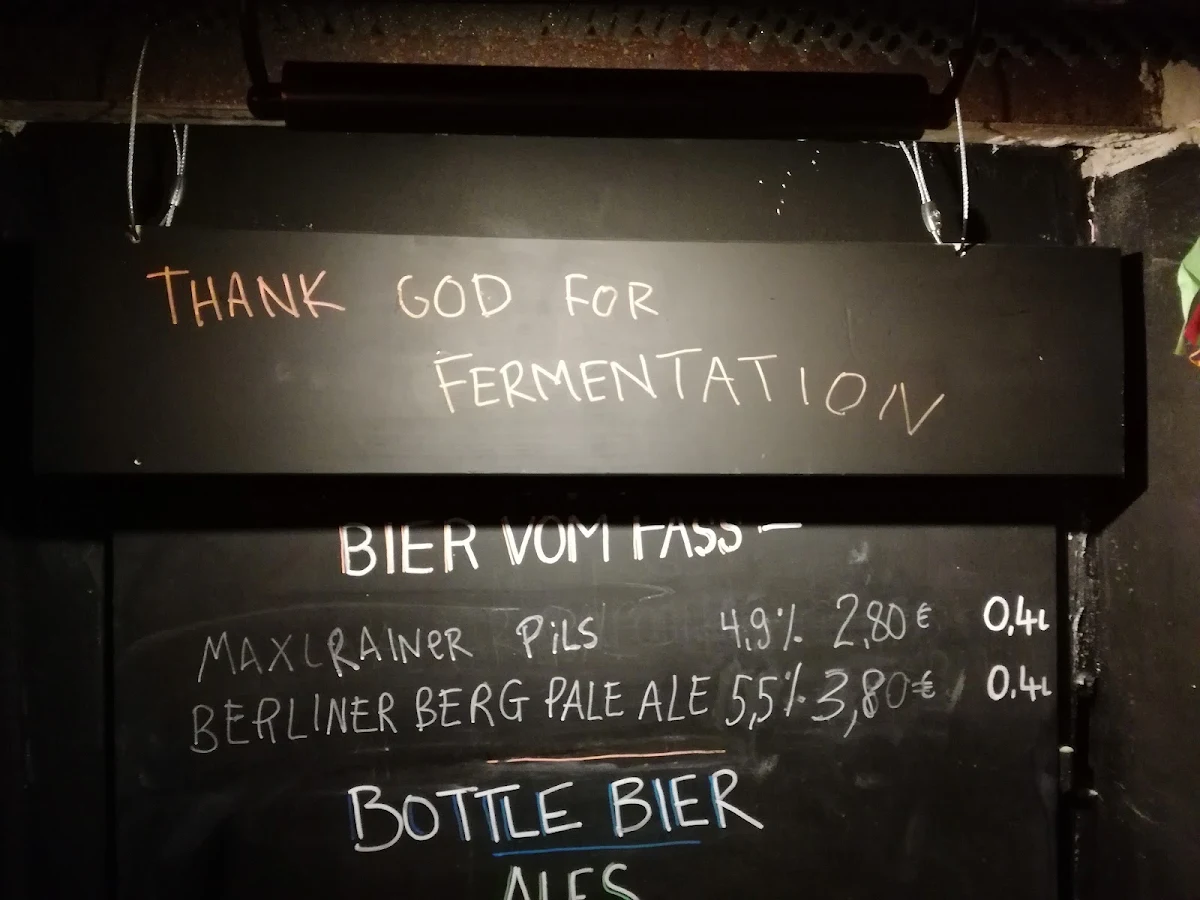 THANK GOD FOR
FERMENTATION
BIER VOM FASS –
MAXLRAINER PiLS 4,9% 2,80€ 0,4L
BERLINER BERG PALE ALE 5,5% 3,80€ 0.4L
BOTTLE BIER
ALES